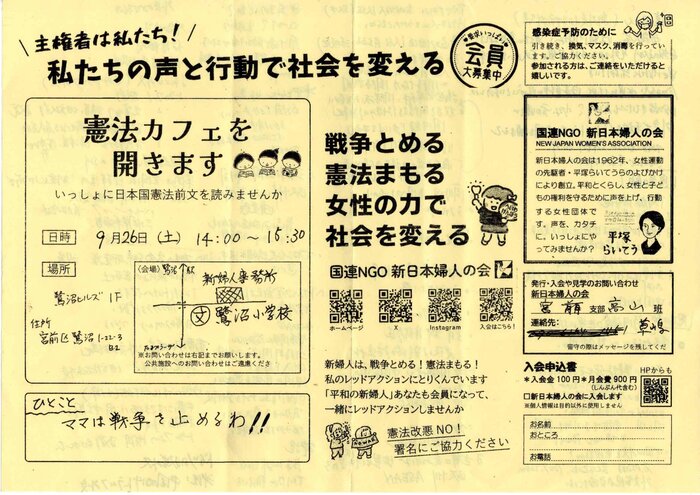 主権者は私たち！
私たちの声と行動で社会を変える
要求いっぱい
会員
大募集中
感染症予防のために
引き続き、換気、マスク、消毒を行っています。ご協力ください。
参加される方は、ご連絡をいただけると嬉しいです。
憲法カフェを
開きます
いっしょに日本国憲法前文を読みませんか
日時 9月26日(土) 14:00〜15:30
場所
鷺沼ヒルズ 1F
住所
宮前区鷺沼1-22-3
B2
(会場)
鷺沼駅
新婦人事務所
文 鷺沼小学校
※お問い合わせは右記までお願いします。
公共施設へのお問い合わせはご遠慮ください
ひとこと
ママは戦争を止めるわ!!
戦争とめる
憲法まもる
女性の力で
社会を変える
国連NGO 新日本婦人の会
ホームページ
X
Instagram
入会はこちら！
新婦人は、戦争とめる！憲法まもる！
私のレッドアクションにとりくんでいます
「平和の新婦人」あなたも会員になって、
一緒にレッドアクションしませんか
憲法改悪NO！
署名にご協力ください
国連NGO 新日本婦人の会
NEW JAPAN WOMEN'S ASSOCIATION
新日本婦人の会は1962年、女性運動
の先駆者・平塚らいてうらのよびかけ
により創立。平和とくらし、女性と子ど
もの権利を守るために声を上げ、行動
する女性団体で
す。声を、カタチ
に。いっしょにや
ってみませんか？
平塚
らいてう
発行・入会や見学のお問い合わせ
新日本婦人の会
宮前 支部 高山 班
連絡先：
留守の際はメッセージを残してくだ
入会申込書
＊入会金100円＊月会費900円
(しんぶん代含む)
HPからも
□新日本婦人の会に入会します
※個人情報は目的以外に使用しません
お名前
おところ
お電話